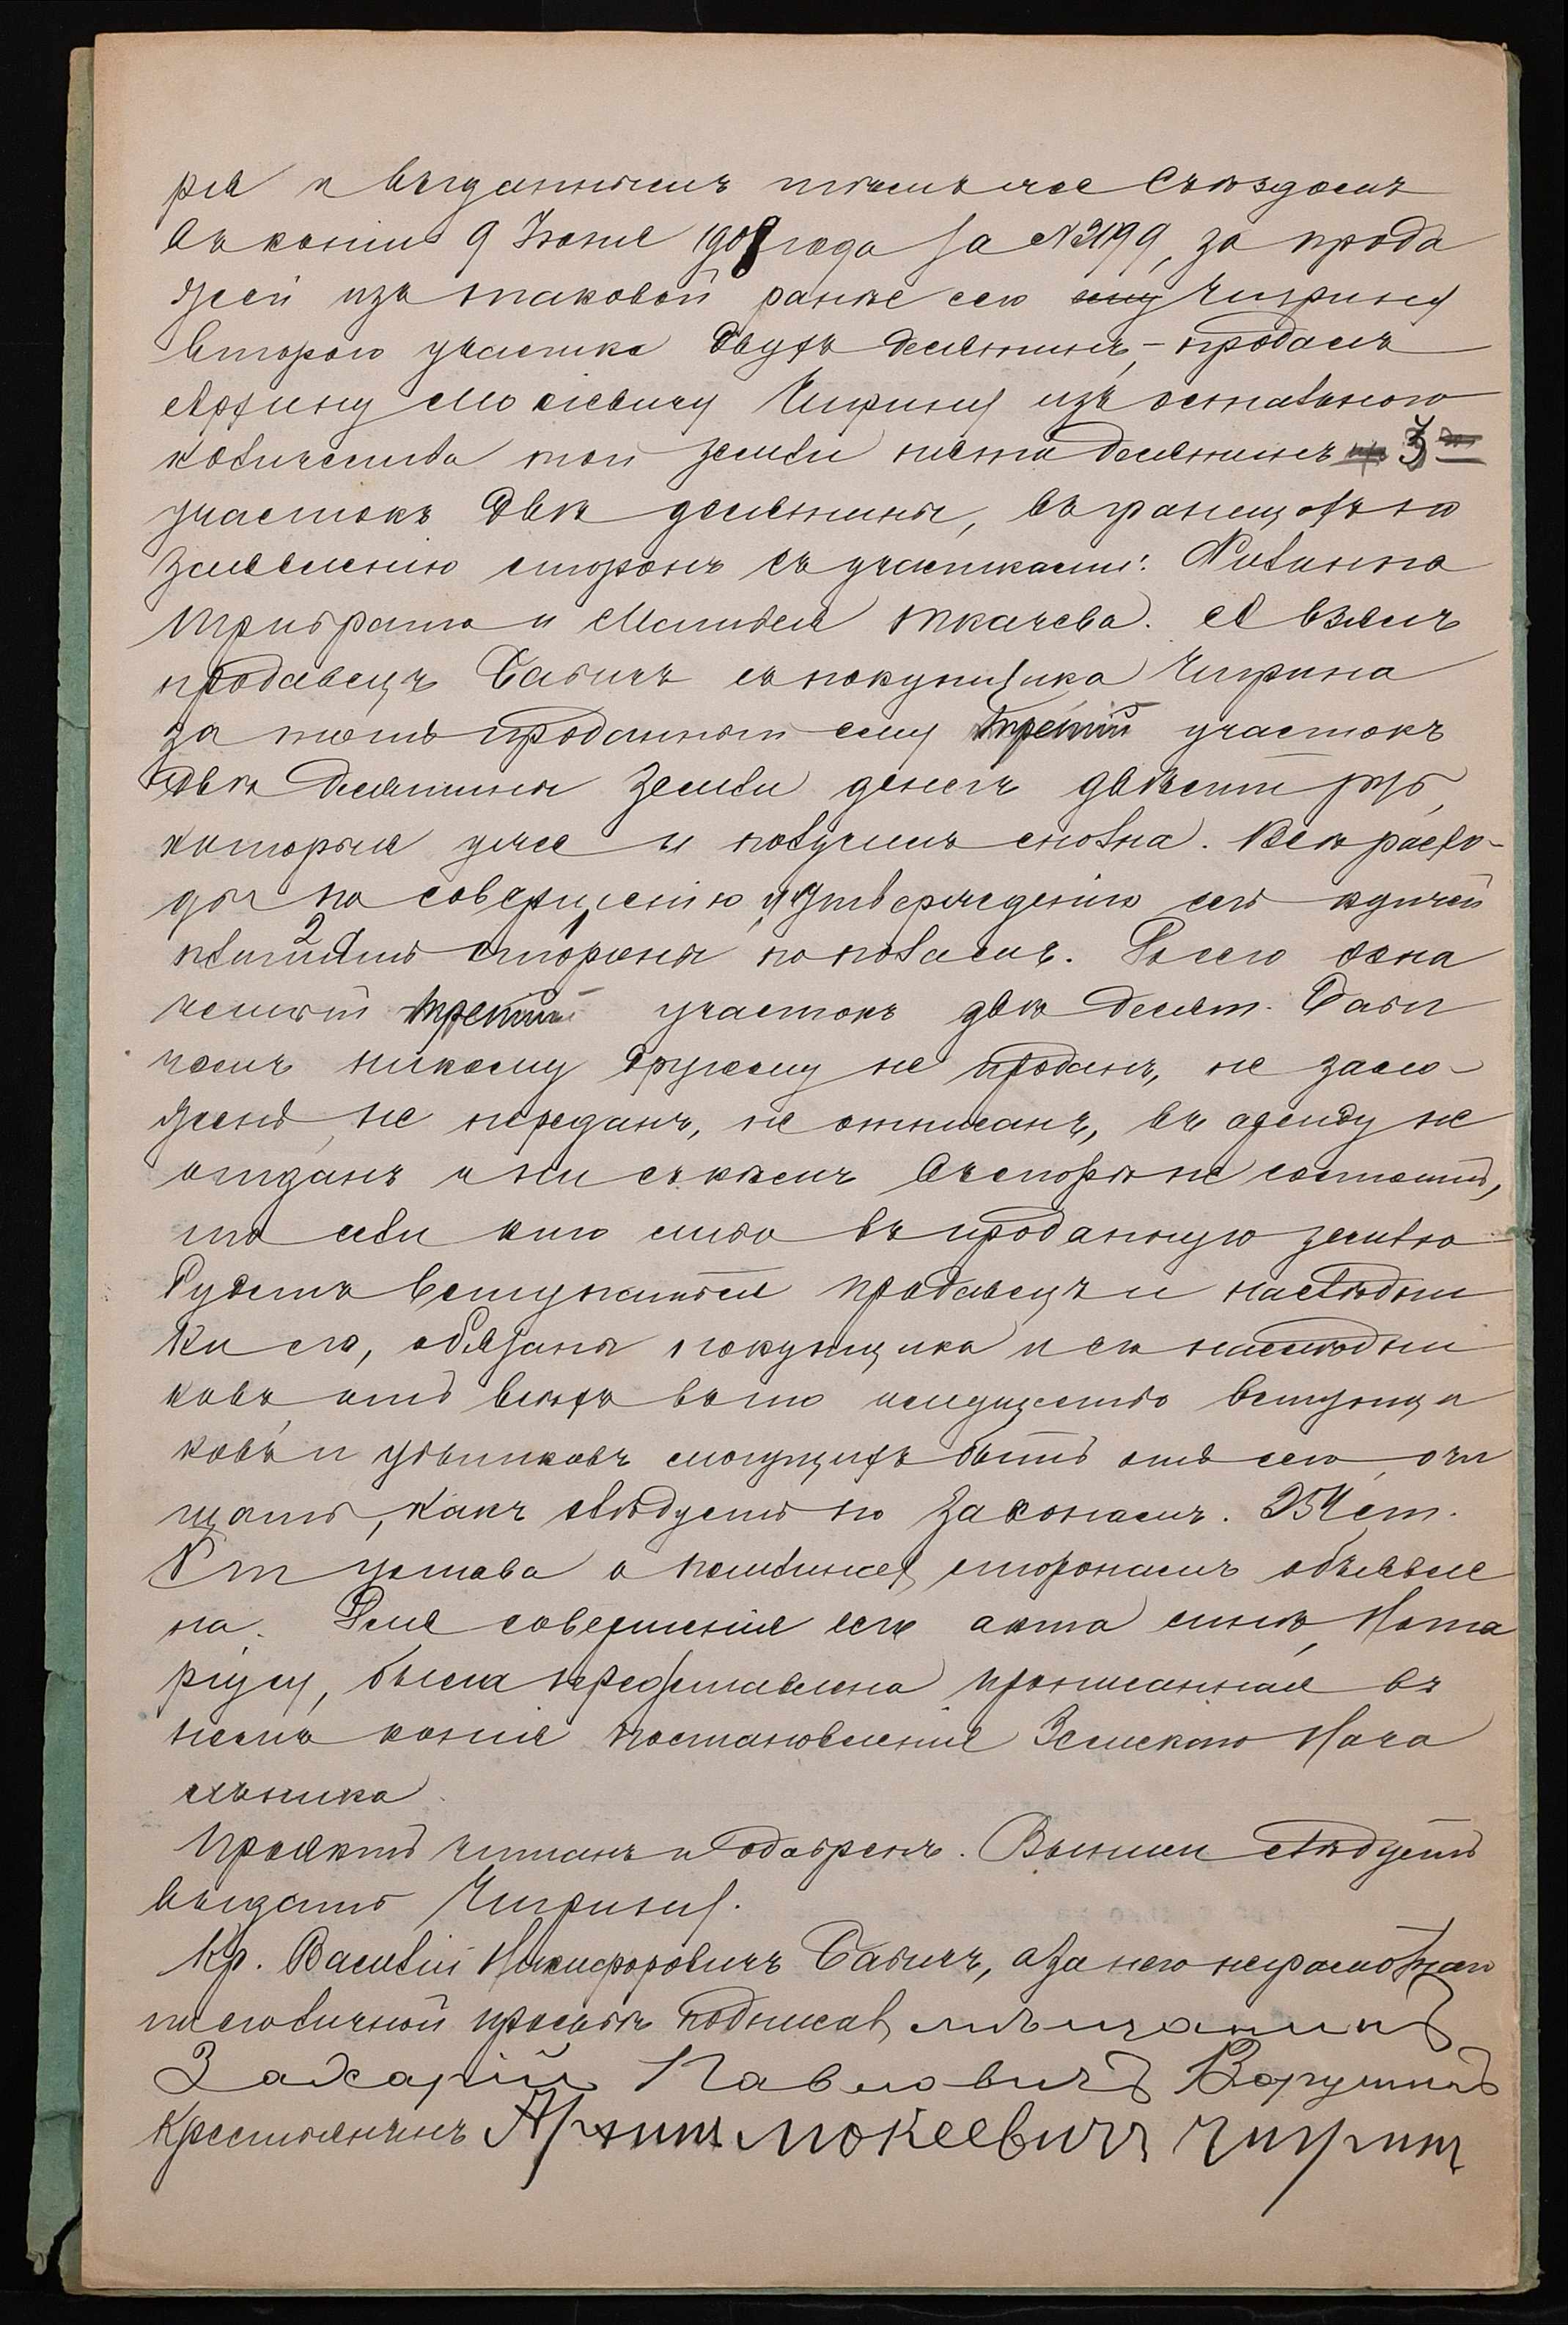 ря и выданнымъ тѣмъ же Съѣздомъ
въ копіи 9 Іюня 1908 года за № 2199, за прода
жей изъ таковой ранѣе сего ему Чирину
второго участка двухъ десятинъ, – продалъ
Архипу Мокіевичу Чирину изъ остального
количества той земли пяти десятинъ 3
участокъ двѣ десятины, въ границахъ по
заявленію сторонъ съ участками: Филиппа
Трибрата и Матвея Ткачева. А взялъ
продавецъ Бабичъ съ покупщика Чирина
за тотъ проданный ему третій участокъ
двѣ десятины земли денегъ двѣсти руб.,
которыя уже и получилъ сполна. Всѣ расхо-
ды по совершенію и утвержденію сей купчей
платятъ 2 стороны по поламъ. До сего озна
ченный третій участокъ двѣ десят. Баби
чемъ никому другому не проданъ, не зало-
женъ, не переданъ, не отписанъ, въ аренду не
отданъ и ни съ кѣмъ въ спорѣ не состоитъ,
то если кто либо въ проданную землю
будетъ вступаться продавецъ и наслѣдни
ки его, обязаны покупщика и его наслѣдни
ковъ, отъ всѣхъ въ то имущество вступщи
ковъ и убытковъ могущихъ быть отъ сего, очи
щать, какъ слѣдуетъ по законамъ. 254 ст.
Уст устава о пошлинахъ сторонамъ объявле
на. Для совершенія сего акта мнѣ, Нота
ріусу, была представлена прописанная въ
немъ копія постановленія Земскаго Нача
льника.
Проэктъ читанъ и одобренъ. Выпись слѣдуетъ
выдать Чирину.
Кр. Василій Никифоровичъ Бабичъ, а за него неграмотнаго
по его личной просьбѣ подписалъ мѣщанинъ
Захарій Павловичъ Ворушинъ
Крестьянинъ Архип мокеевичъ чирин